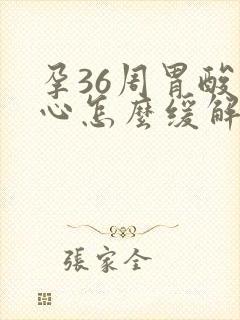 孕36周胃酸
心怎麼缓解
張家全